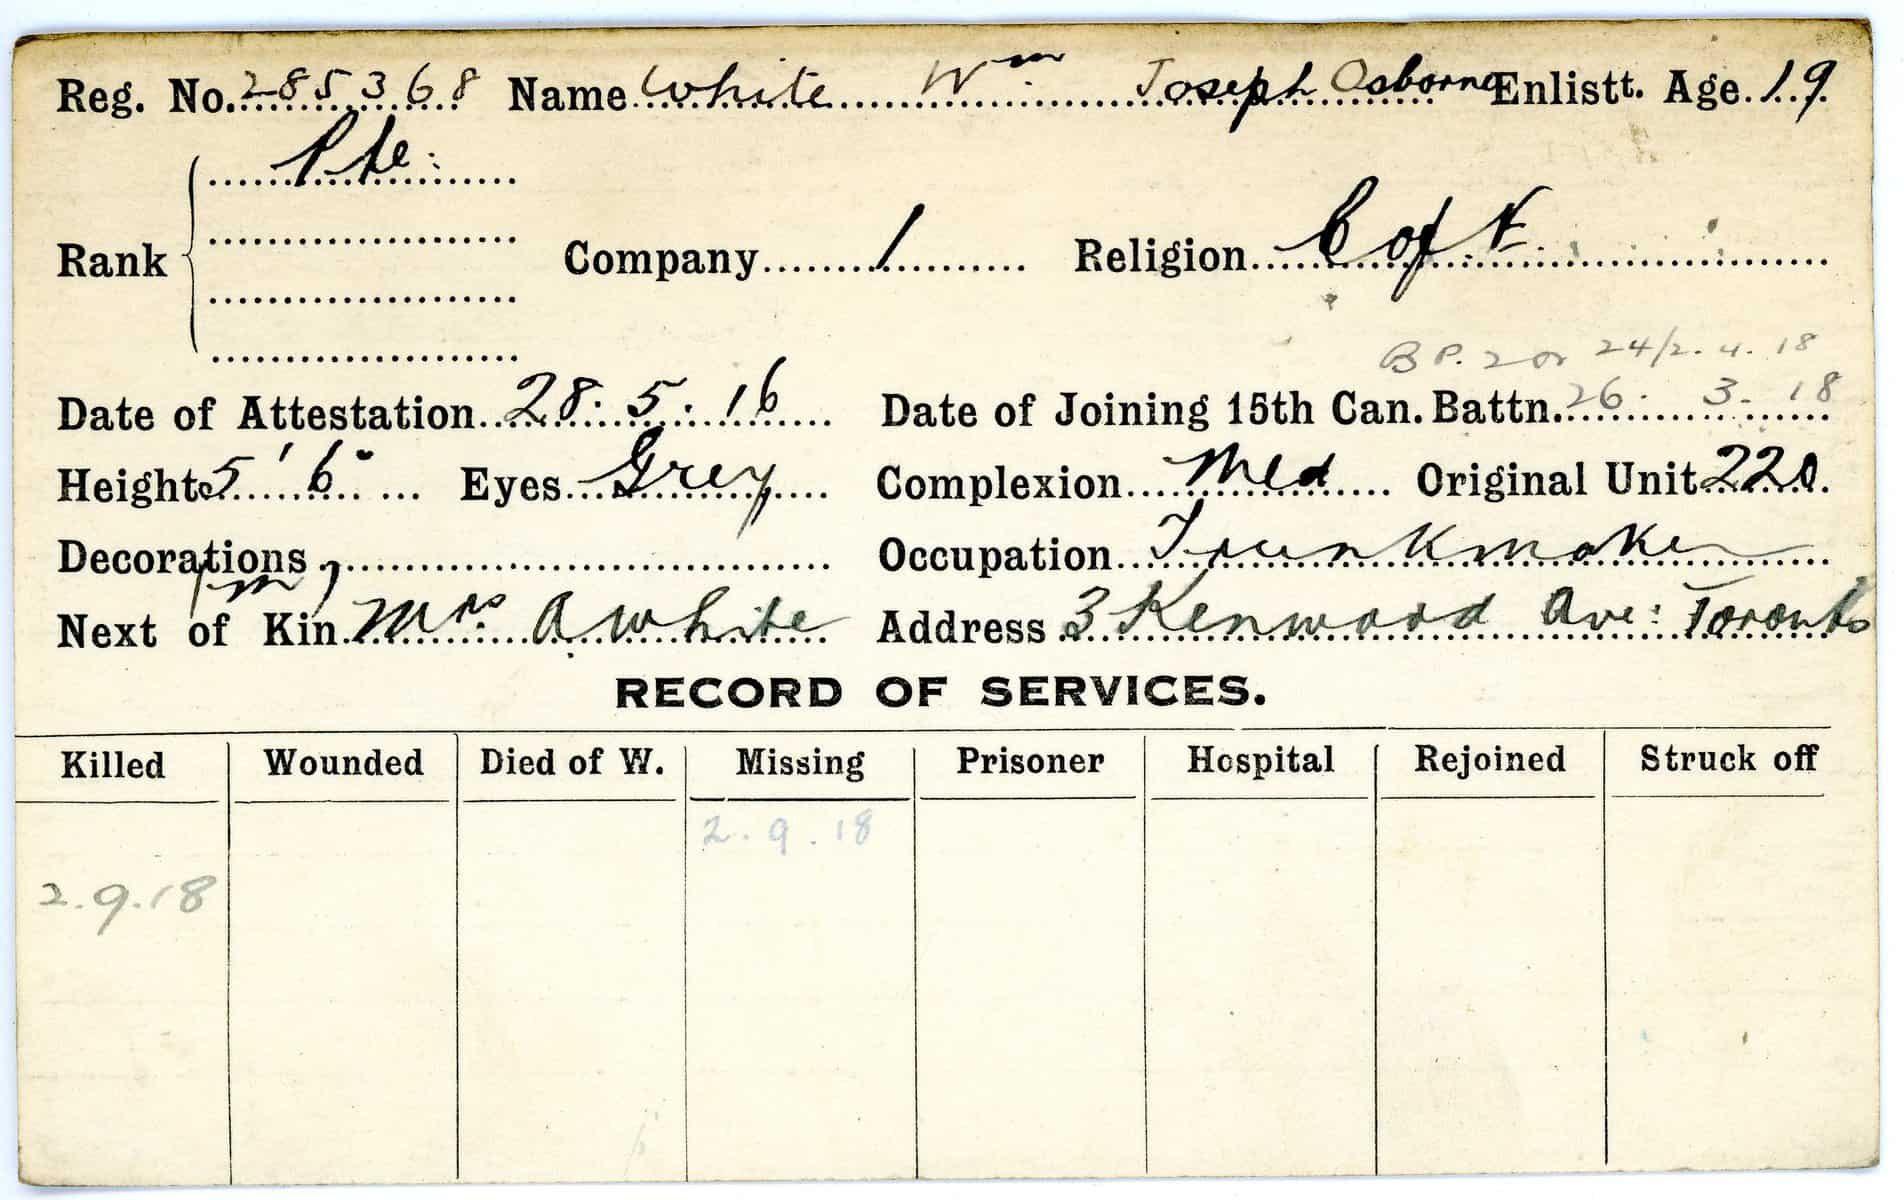 Reg. No. 285368 Name White Wm Joseph Osborne Enlistt. Age. 19
Pte.
Rank Company 1 Religion C of E.
B P. 2 or 24/2.4.18
Date of Attestation 28.5.16 Date of Joining 15th Can. Battn. 26.3.18
Height 5' 6" Eyes Grey Complexion Med Original Unit 220
Decorations Occupation Trunkmaker
(m)
Next of Kin Mrs. A White Address 3 Kenwood Ave: Toronto
RECORD OF SERVICES.
Killed Wounded Died of W. Missing Prisoner Hospital Rejoined Struck off
2.9.18
2.9.18